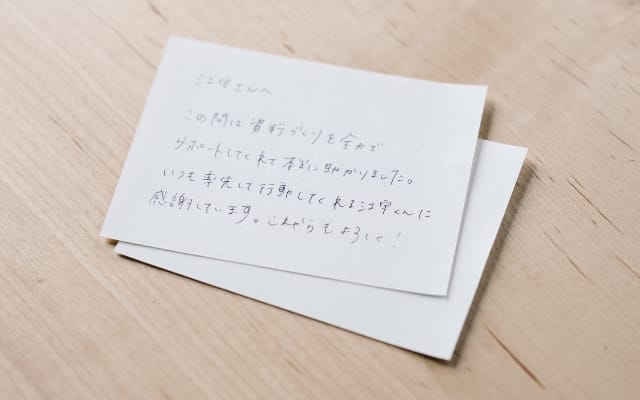 江守さんへ
この間は資料づくりを全力で
サポートしてくれて本当に助かりました。
いつも率先して行動してくれる江守くんに
感謝しています。これからもよろしく!